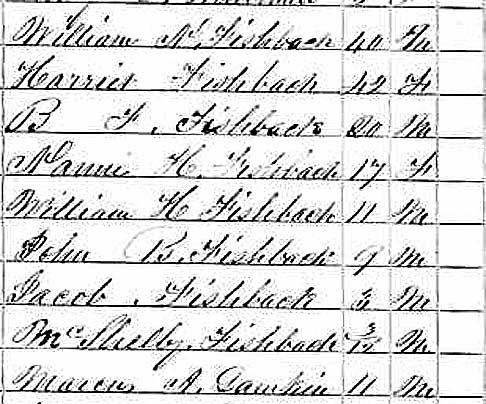 William N. Fishback 40 M
Harriet Fishback 42 F
B F. Fishback 20 M
Nannie H. Fishback 17 F
William H Fishback 11 M
John B. Fishback 9 M
Jacob Fishback 3 M
Mc Shelby Fishback 3/12 M
Marcus A. 11 M